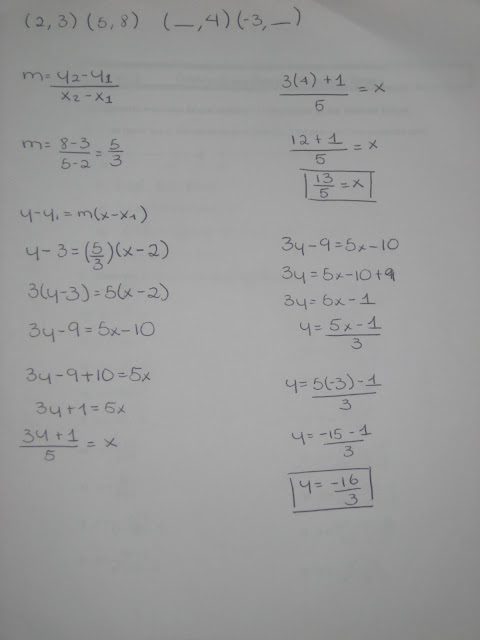 (2,3) (5,8) (__,4) (-3,__)
m= y2-y1 / x2-x1
m= 8-3 / 5-2 = 5/3
y-y1=m(x-x1)
y-3=(5/3)(x-2)
3(y-3)=5(x-2)
3y-9=5x-10
3y-9+10=5x
3y+1=5x
3y+1 / 5 = x
3(4)+1 / 5 = x
12+1 / 5 = x
13/5 = x
3y-9=5x-10
3y=5x-10+9
3y=5x-1
y= 5x-1 / 3
y= 5(-3)-1 / 3
y= -15-1 / 3
y= -16/3